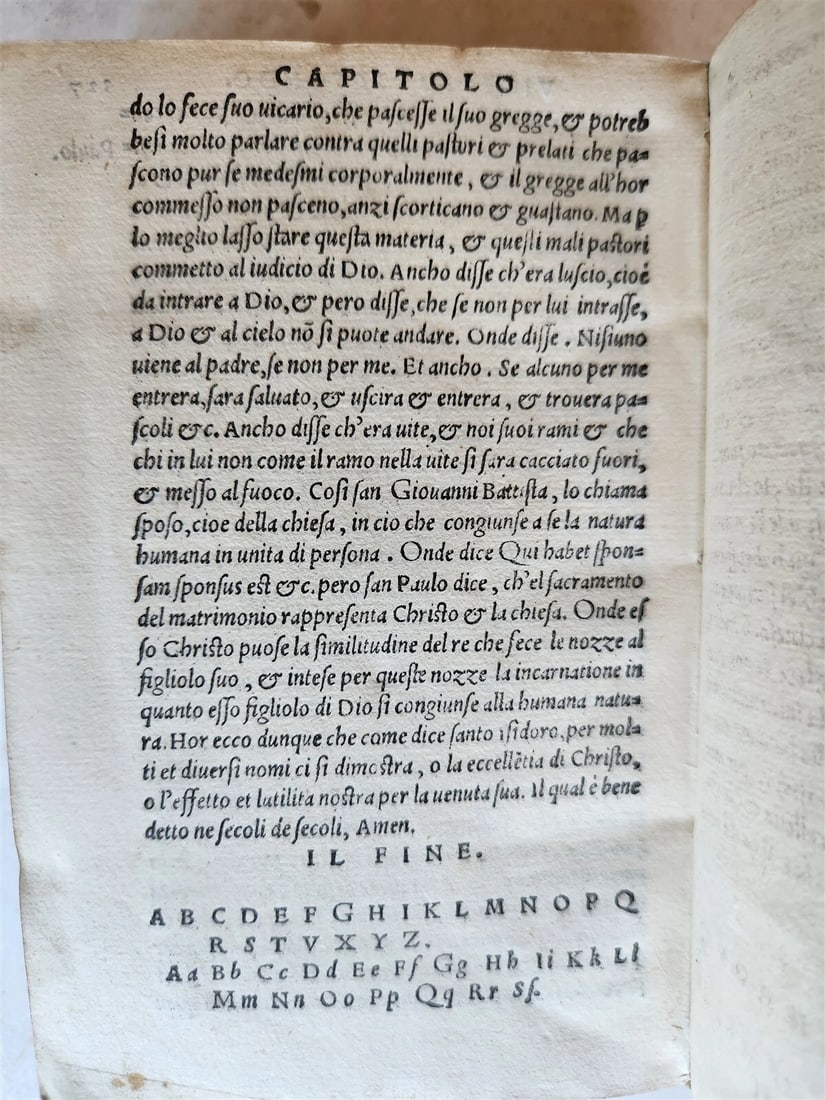 CAPITOLO
do lo fece ſuo uicario,che paſceſſe il ſuo gregge,& potreb
beſi molto parlare contra quelli paſtori & prelati che pa=
ſcono pur ſe medeſmi corporalmente, & il gregge all'hor
commeſſo non paſceno,anzi ſcorticano & guaſtano. Ma ꝑ
lo meglio laſſo ſtare queſta materia, & queſti mali paſtori
commetto al iudicio di Dio. Ancho diſſe ch'era luſcio,cioè
da intrare a Dio,& pero diſſe,che ſe non per lui intraſſe,
a Dio & al cielo nō ſi puote andare. Onde diſſe. Niſiuno
uiene al padre,ſe non per me. Et ancho. Se alcuno per me
entrera,ſara ſaluato,& uſcira & entrera, & trouera pa=
ſcoli &c. Ancho diſſe ch'era uite,& noi ſuoi rami & che
chi in lui non come il ramo nella uite ſi ſara cacciato fuori,
& meſſo al fuoco. Coſi ſan Giouanni Battiſta, lo chiama
ſpoſo,cioe della chieſa, in cio che congiunſe a ſe la natura
humana in unita di perſona. Onde dice Qui habet ſpon=
ſam ſponſus eſt &c.pero ſan Paulo dice, ch'el ſacramento
del matrimonio rappreſenta Chriſto & la chieſa. Onde eſ
ſo Chriſto puoſe la ſimilitudine del re che fece le nozze al
figliolo ſuo, & inteſe per queſte nozze la incarnatione in
quanto eſſo figliolo di Dio ſi congiunſe alla humana natu=
ra.Hor ecco dunque che come dice ſanto iſidoro,per mol=
ti et diuerſi nomi ci ſi dimoſtra, o la eccellētia di Chriſto,
o l'effetto et lutilita noſtra per la uenuta ſua. Il qual è bene
detto ne ſecoli de ſecoli, Amen.
IL FINE.
A B C D E F G H I K L M N O P Q
R S T V X Y Z.
Aa Bb Cc Dd Ee Ff Gg Hh Ii Kk Ll
Mm Nn Oo Pp Qq Rr Sſ.